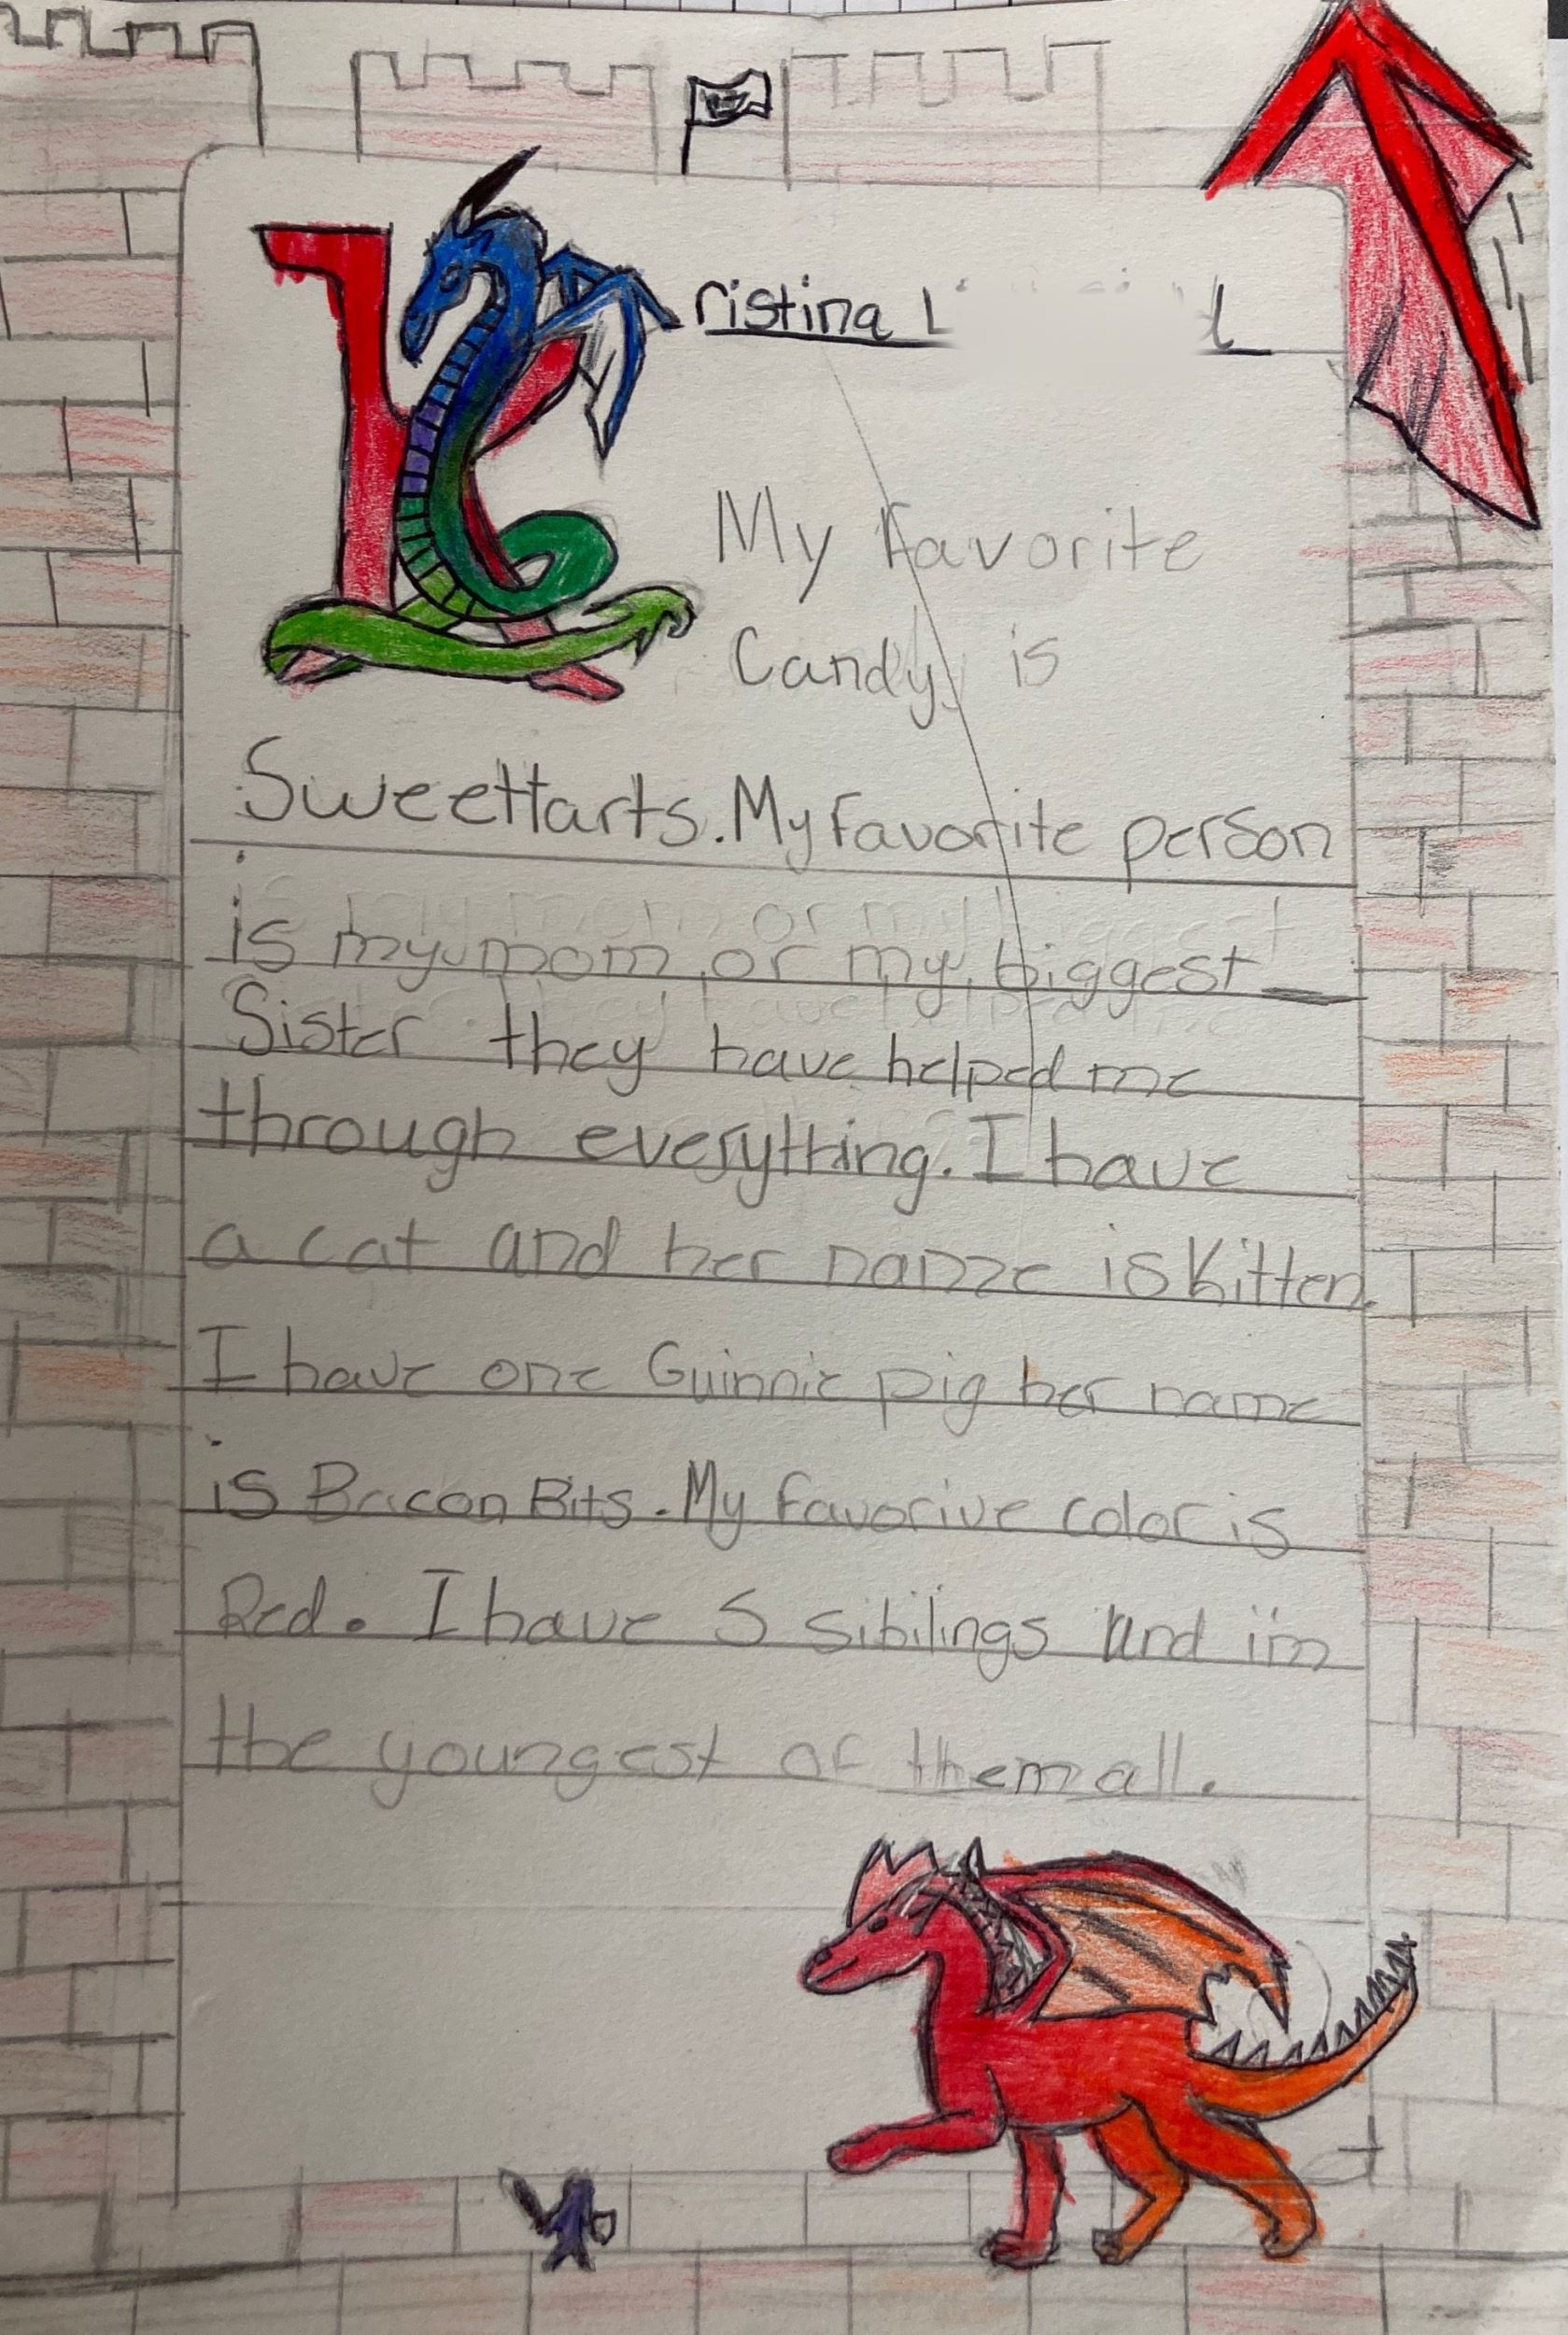 Kristina L
My Favorite
Candy is
Sweettarts. My Favorite person
is my mom or my biggest
Sister they have helped me
through everything. I have
a cat and her name is Kitten.
I have one Guinnie pig her name
is Bacon Bits. My favorive color is
Red. I have 5 sibilings and i'm
the youngest of them all.